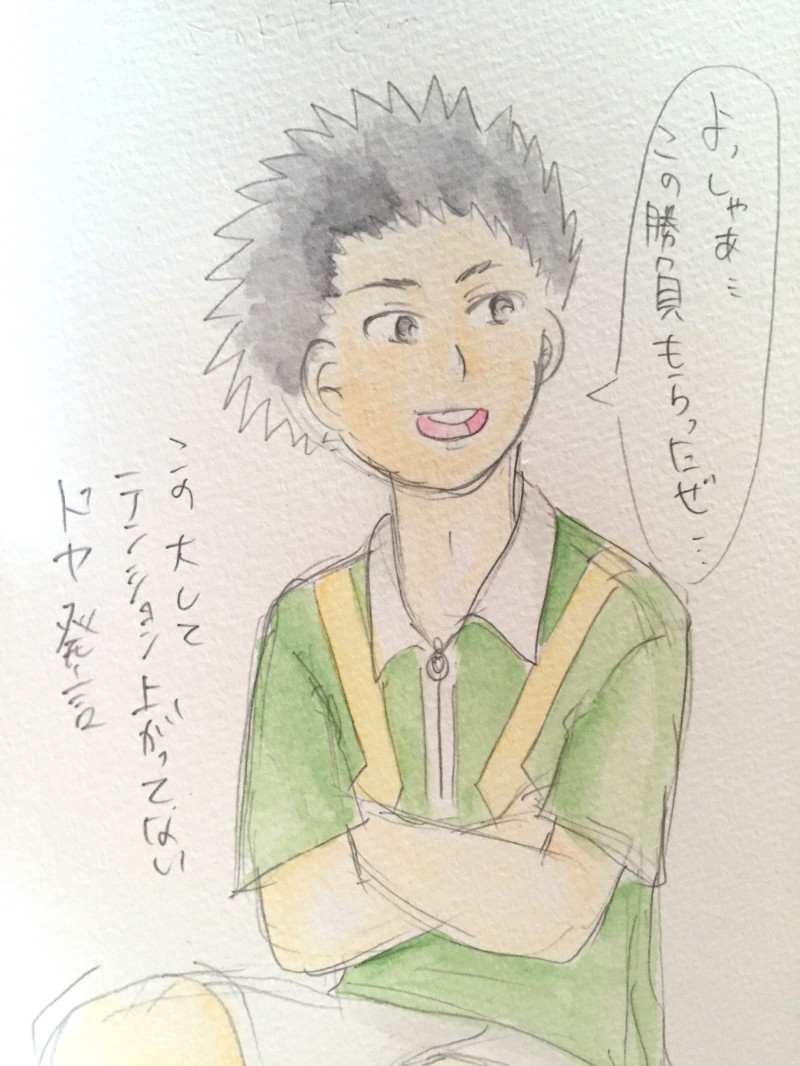 よっしゃぁ…
この勝負もらったぜ…
この大して
テンション上がってない
ドヤ発言